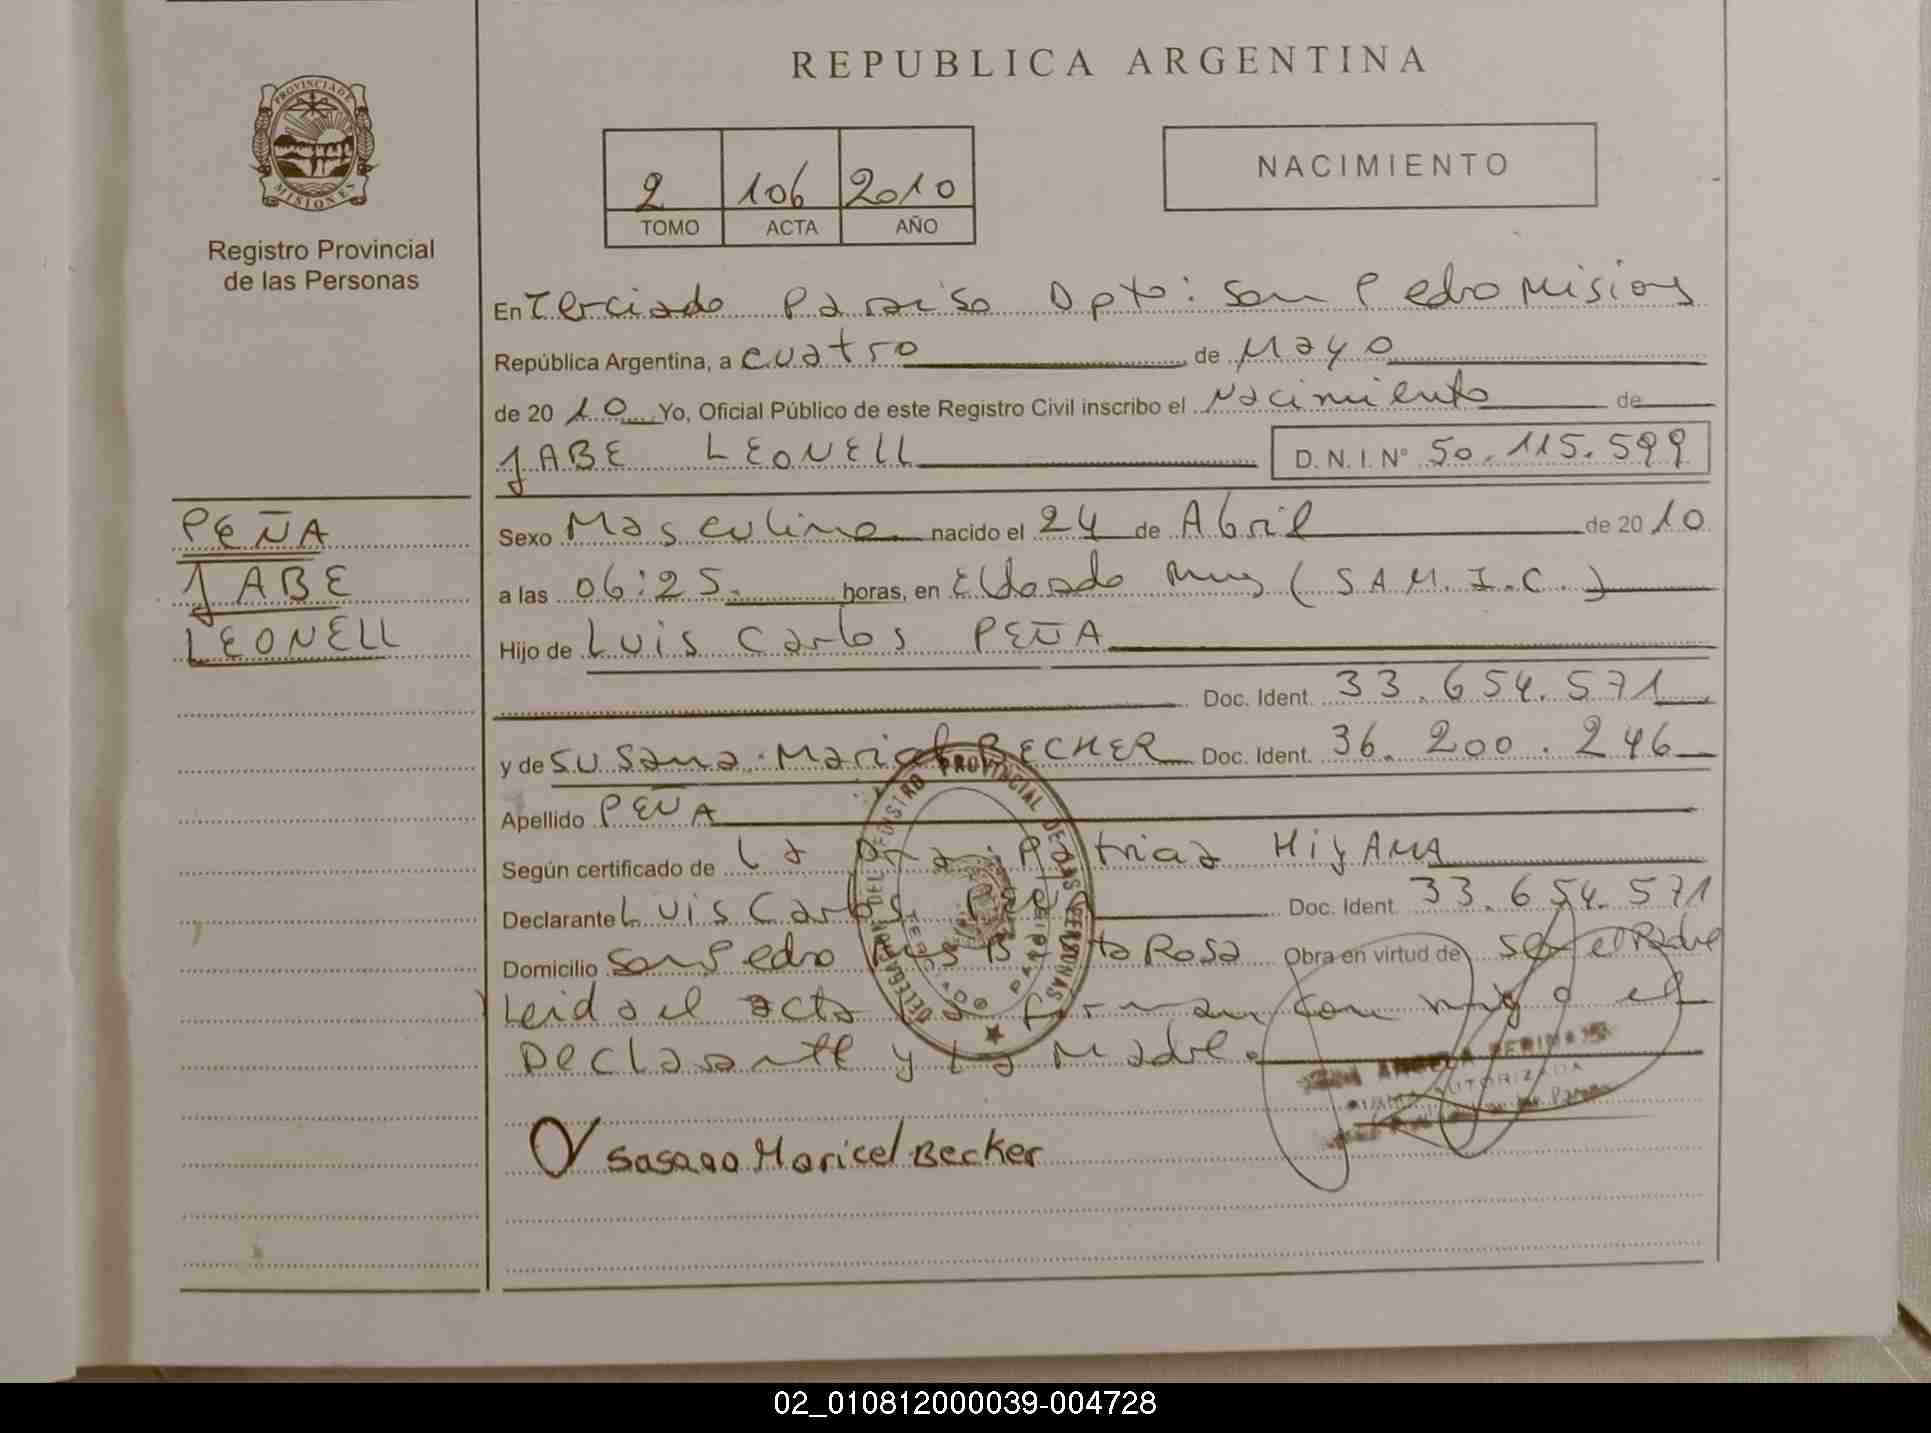 REPUBLICA ARGENTINA
PROVINCIA DE
MISIONES
Registro Provincial
de las Personas
2 106 2010
TOMO ACTA AÑO
NACIMIENTO
En Terciado Paraiso Dpto: San Pedro Misiones
República Argentina, a cuatro de Mayo
de 20 10 Yo, Oficial Público de este Registro Civil inscribo el Nacimiento de
JABE LEONELL D.N.I.N° 50.115.599
PEÑA
JABE
LEONELL
Sexo Masculino nacido el 24 de Abril de 20 10
a las 06:25 horas, en Eldorado Mnes (S.A.M.I.C.)
Hijo de Luis Carlos PEÑA
Doc. Ident. 33.654.571
y de Susana Maricel BECKER Doc. Ident. 36.200.246
Apellido PEÑA
Según certificado de La Dra. Patricia HiJAMA
Declarante Luis Carlos Peña Doc. Ident. 33.654.571
Domicilio San Pedro Mnes Rosa Obra en virtud de ser el Padre
Leida el acta la firman con migo el
Declarante y la Madre.
REGISTRO PROVINCIAL DE LAS PERSONAS
DELEGACION DEL
AUTORIZADA
Sasana Maricel Becker
02_010812000039-004728